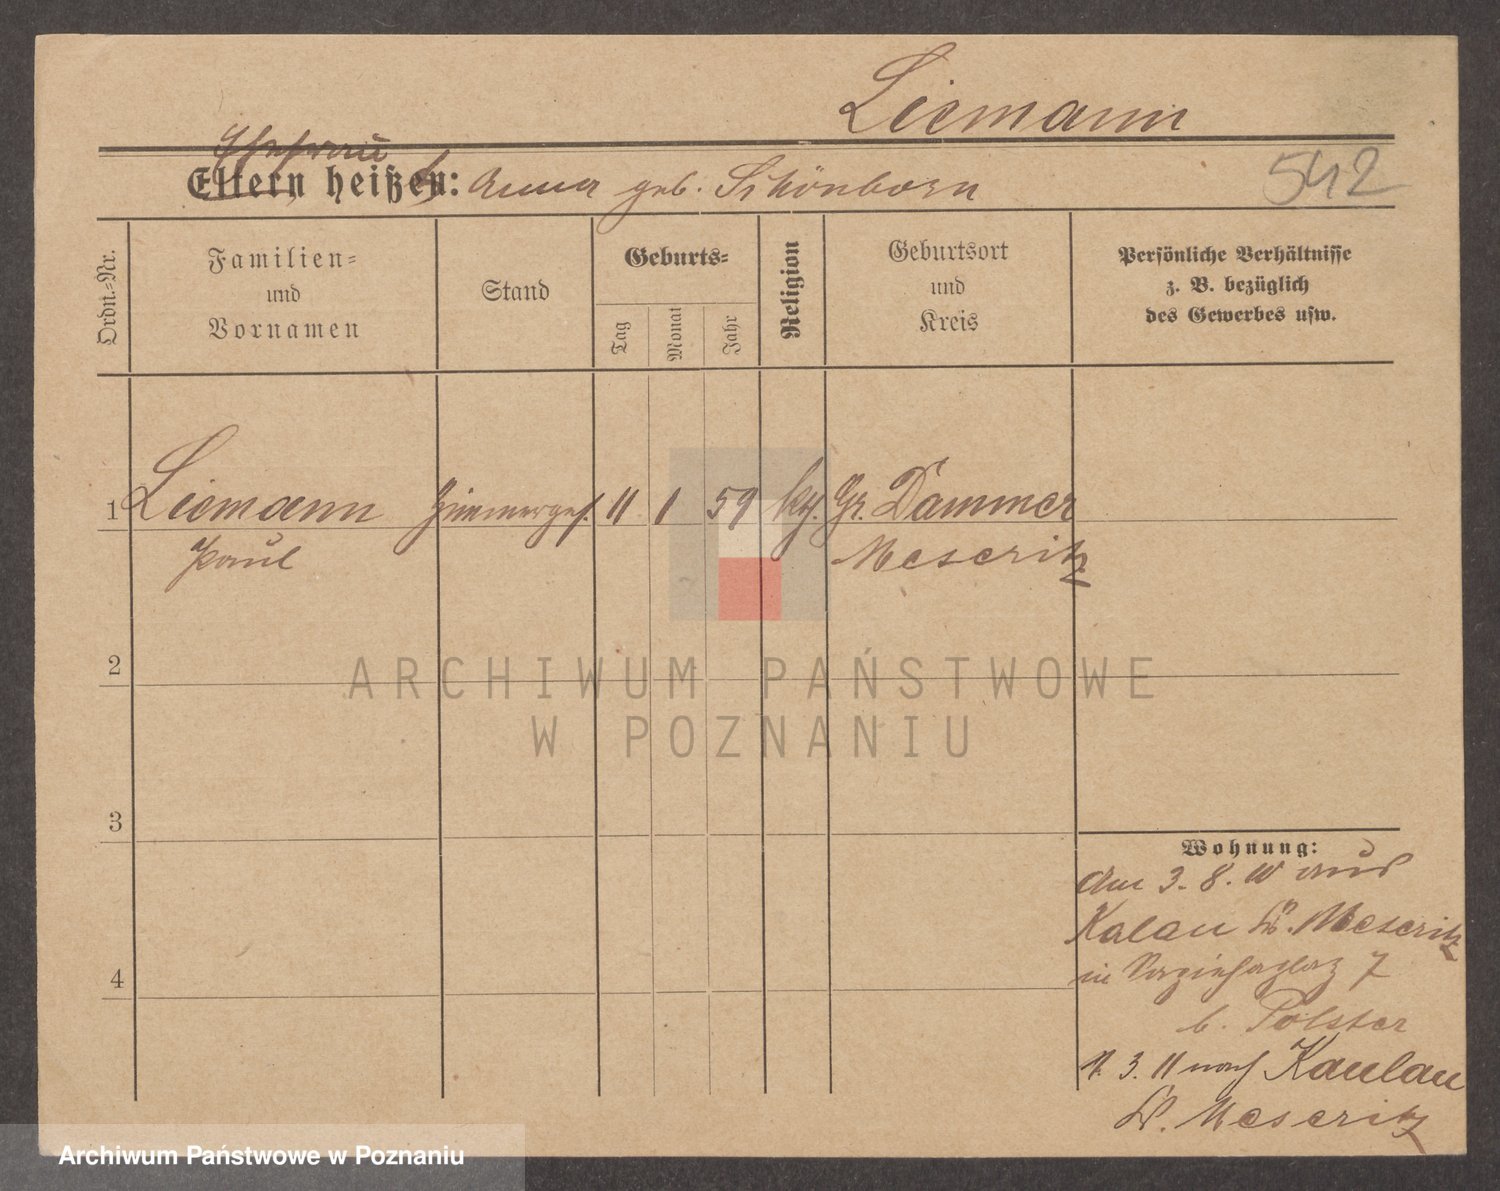 Liemann
Ehefrau
Eltern heißen: Anna geb. Schönborn
542
Ordn.-Nr.
Familien-
und
Vornamen
Stand
Geburts-
Tag
Monat
Jahr
Religion
Geburtsort
und
Kreis
Persönliche Verhältnisse
z. B. bezüglich
des Gewerbes usw.
1 Liemann Zimmerges. 11 1 59 Gr. Dammer
Paul Meseritz
2
ARCHIWUM PAŃSTWOWE
W POZNANIU
3
Wohnung:
Am 3. 8. 10 aus
Kalau Kr. Meseritz
in 7
4
b. Polster
11. 3. 11 nach Kaulau
Kr. Meseritz
Archiwum Państwowe w Poznaniu